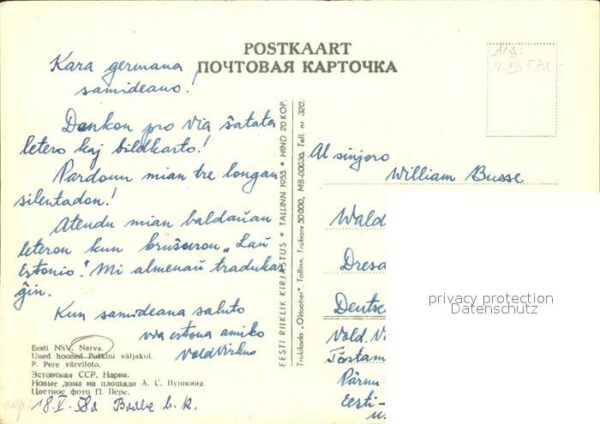 POSTKAART
ПОЧТОВАЯ КАРТОЧКА
Kara germana
samideano!
Dankon pro via ŝatata
letero kaj bildkarto!
Pardonu mian tre longan
silentadon!
Atendu mian baldaŭan
leteron kun broŝuron „Laŭ
Estonio". Mi almenaŭ tradukas
ĝin.
Kun samideana saluto
via estona amiko
Eesti NSV. Narva.
Uued hooned Puškini väljakul.
P. Pere värvifoto.
Эстонская ССР. Нарва.
Новые дома на площади А. С. Пушкина.
Цветное фото П. Пере.
18.V.58a
EESTI RIIKLIK KIRJASTUS * TALLINN 1955 * HIND 20 KOP.
Trükikoda „Oktoober" Tallinn. Trükiarv 50 000. MB-00036. Tell. nr. 320.
Al sinjoro
William Busse
Wald
Dresd
Deutsc
Vold. Vi
Tõstam
Pärnu
Eesti-
privacy protection
Datenschutz